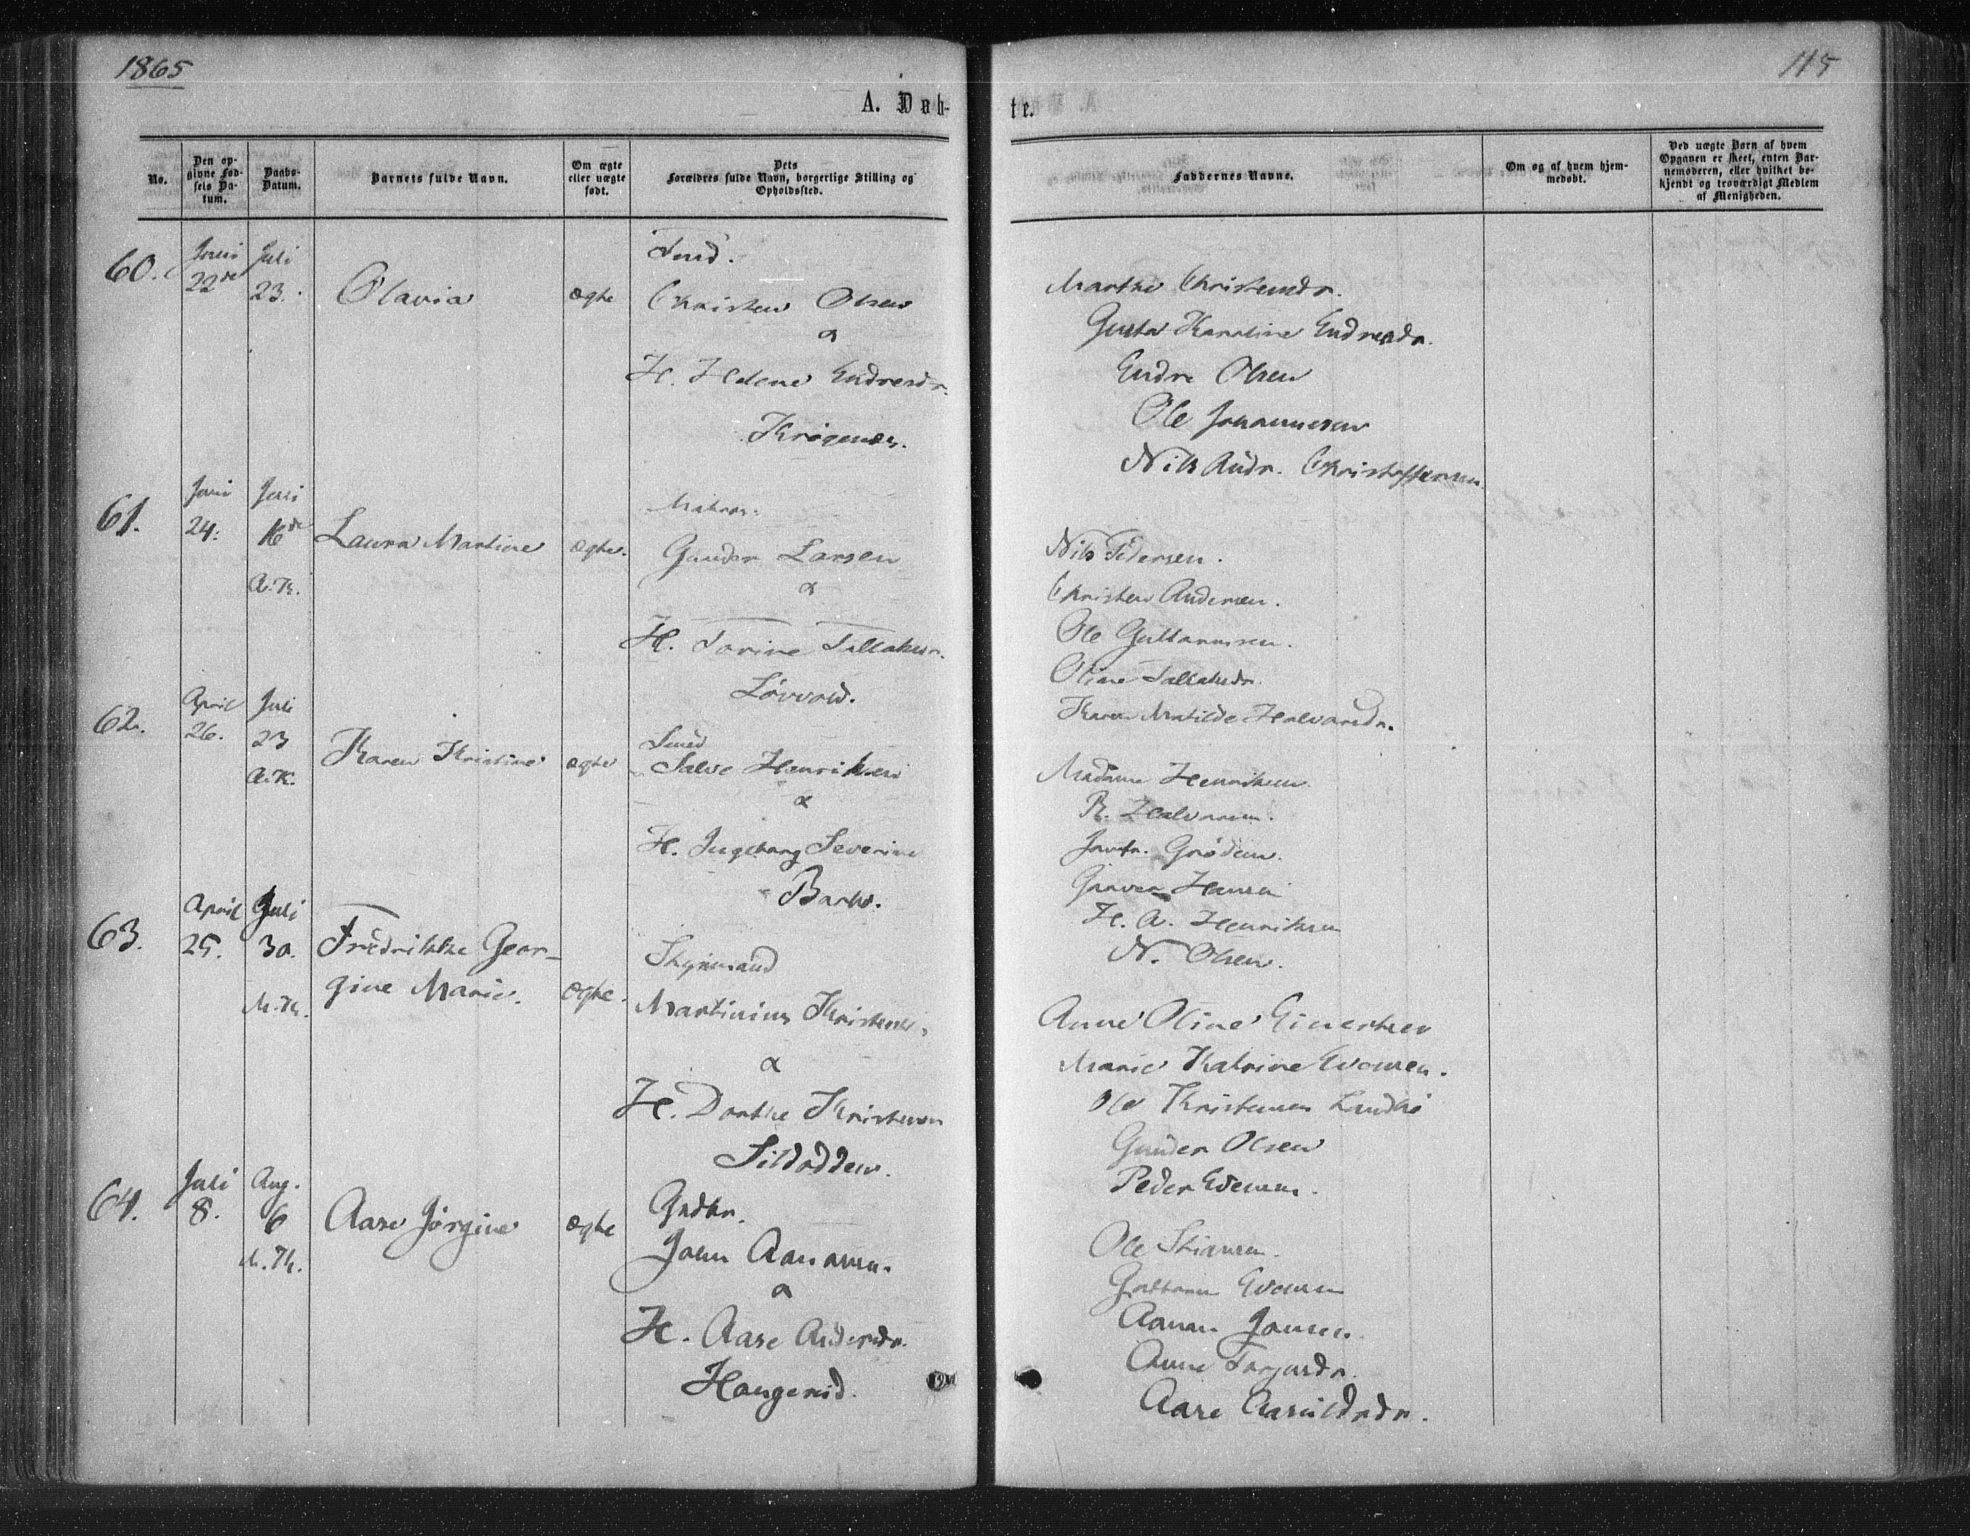 1865
115
A. Døb-
te.
No.
Den op-
givne Fød-
sels Da-
tum.
Daabs-
Datum.
Barnets fulde Navn.
Om ægte
eller uægte
født.
Dets
Forældres fulde Navn, borgerlige Stilling og
Opholdssted.
Faddernes Navne.
Om og af hvem hjem-
medøbt.
Ved uægte Børn af hvem
Opgaven er skeet, enten Bar-
nemoderen, eller hvilket be-
kjendt og troværdigt Medlem
af Menigheden.
60.
Juni
22de
Juli
23.
Olavia
ægte
Christen Olsen
&
H. Helene Endresdr.
Krøgenæs.
Marthe Christensdr.
Karoline Endresdr.
Endre Olsen
Ole Johannesen
Nils Andr. Christoffersen
61.
Juni
24.
Juli
16de
A.K.
Laura Martine
ægte.
Matros.
Gunder Larsen
&
H. Torine Tallaksdr.
Løvvold.
Nils Pedersen.
Christen Andersen.
Ole Guttormsen.
Oline Tallaksdr.
Karen Matilde Halvorsdr.
62.
April
26.
Juli
23
A.K.
Karen Kristine
ægte
Smed
Salve Henriksen
&
H. Ingeborg Severine
Barbo.
Madame Henriksen.
R. Halvorsen.
Jomfr. Grødem.
Hansen
H. A. Henriksen
N. Olsen.
63.
April
25.
Juli
30.
M.Th.
Fredrikke Geor-
gine Marie.
ægte.
Skymand
Martinius Kristensen
&
H. Dorthe Kristensen
Sildodden.
Anne Oline Einertsen
Marie Katrine Evensen.
Ole Kristensen
Gunder Olsen
Peder Evensen.
64.
Juli
8.
Aug.
6
M.Th.
Aase Jørgine
ægte
Grdbr.
John Aanonsen.
&
H. Aase Andersdr.
Haugerid.
Ole
Guttorm Evensen
Aanon Jonsen.
Anne Torjusdr.
Aase Aasuldsdr.